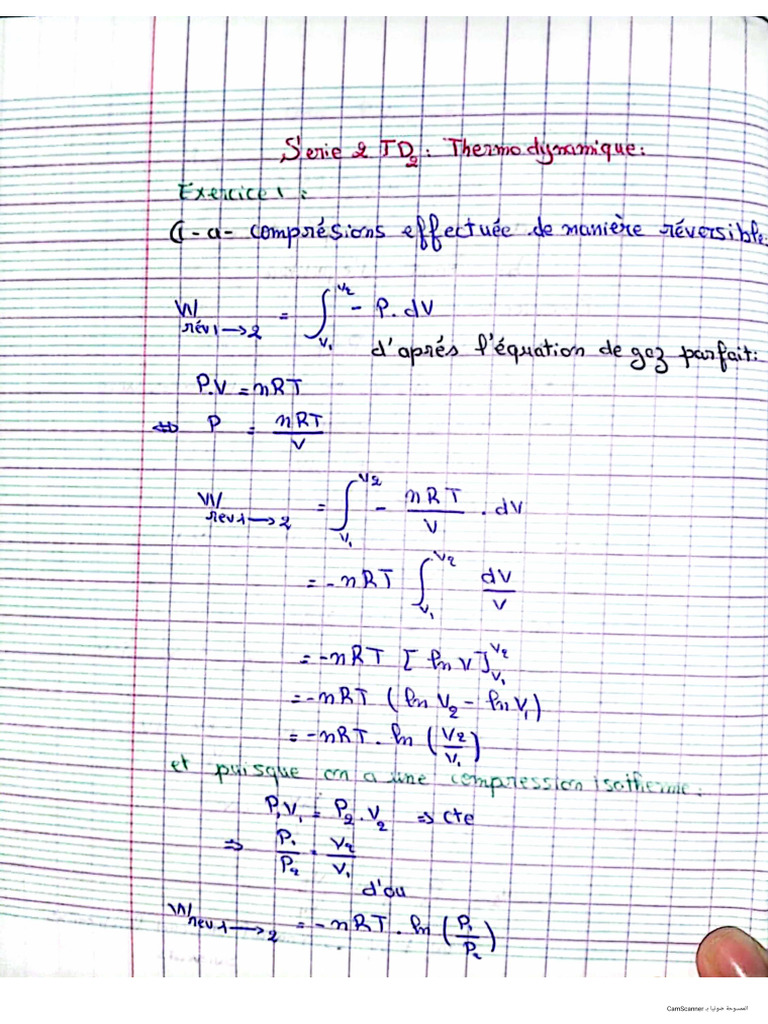 Serie 2 TD₂ : Thermodynamique :
Exercice 1 :
1-a- comprésions effectuée de manière réversible.
W rév 1→2 = ∫_{V₁}^{V₂} - P. dV
d'aprés l'équation de gaz parfait:
P.V = nRT
⇔ P = nRT/V
W rev 1→2 = ∫_{V₁}^{V₂} - nRT/V . dV
= - nRT ∫_{V₁}^{V₂} dV/V
= -nRT [ln V]_{V₁}^{V₂}
= -nRT (ln V₂ - ln V₁)
= -nRT. ln (V₂/V₁)
et puisque on a une compression isotherme :
P₁V₁ = P₂.V₂ ⇒ cte
⇒ P₁/P₂ = V₂/V₁
d'ou
W rev 1→2 = -nRT. ln (P₁/P₂)
الممسوحة ضوئيا بـ CamScanner